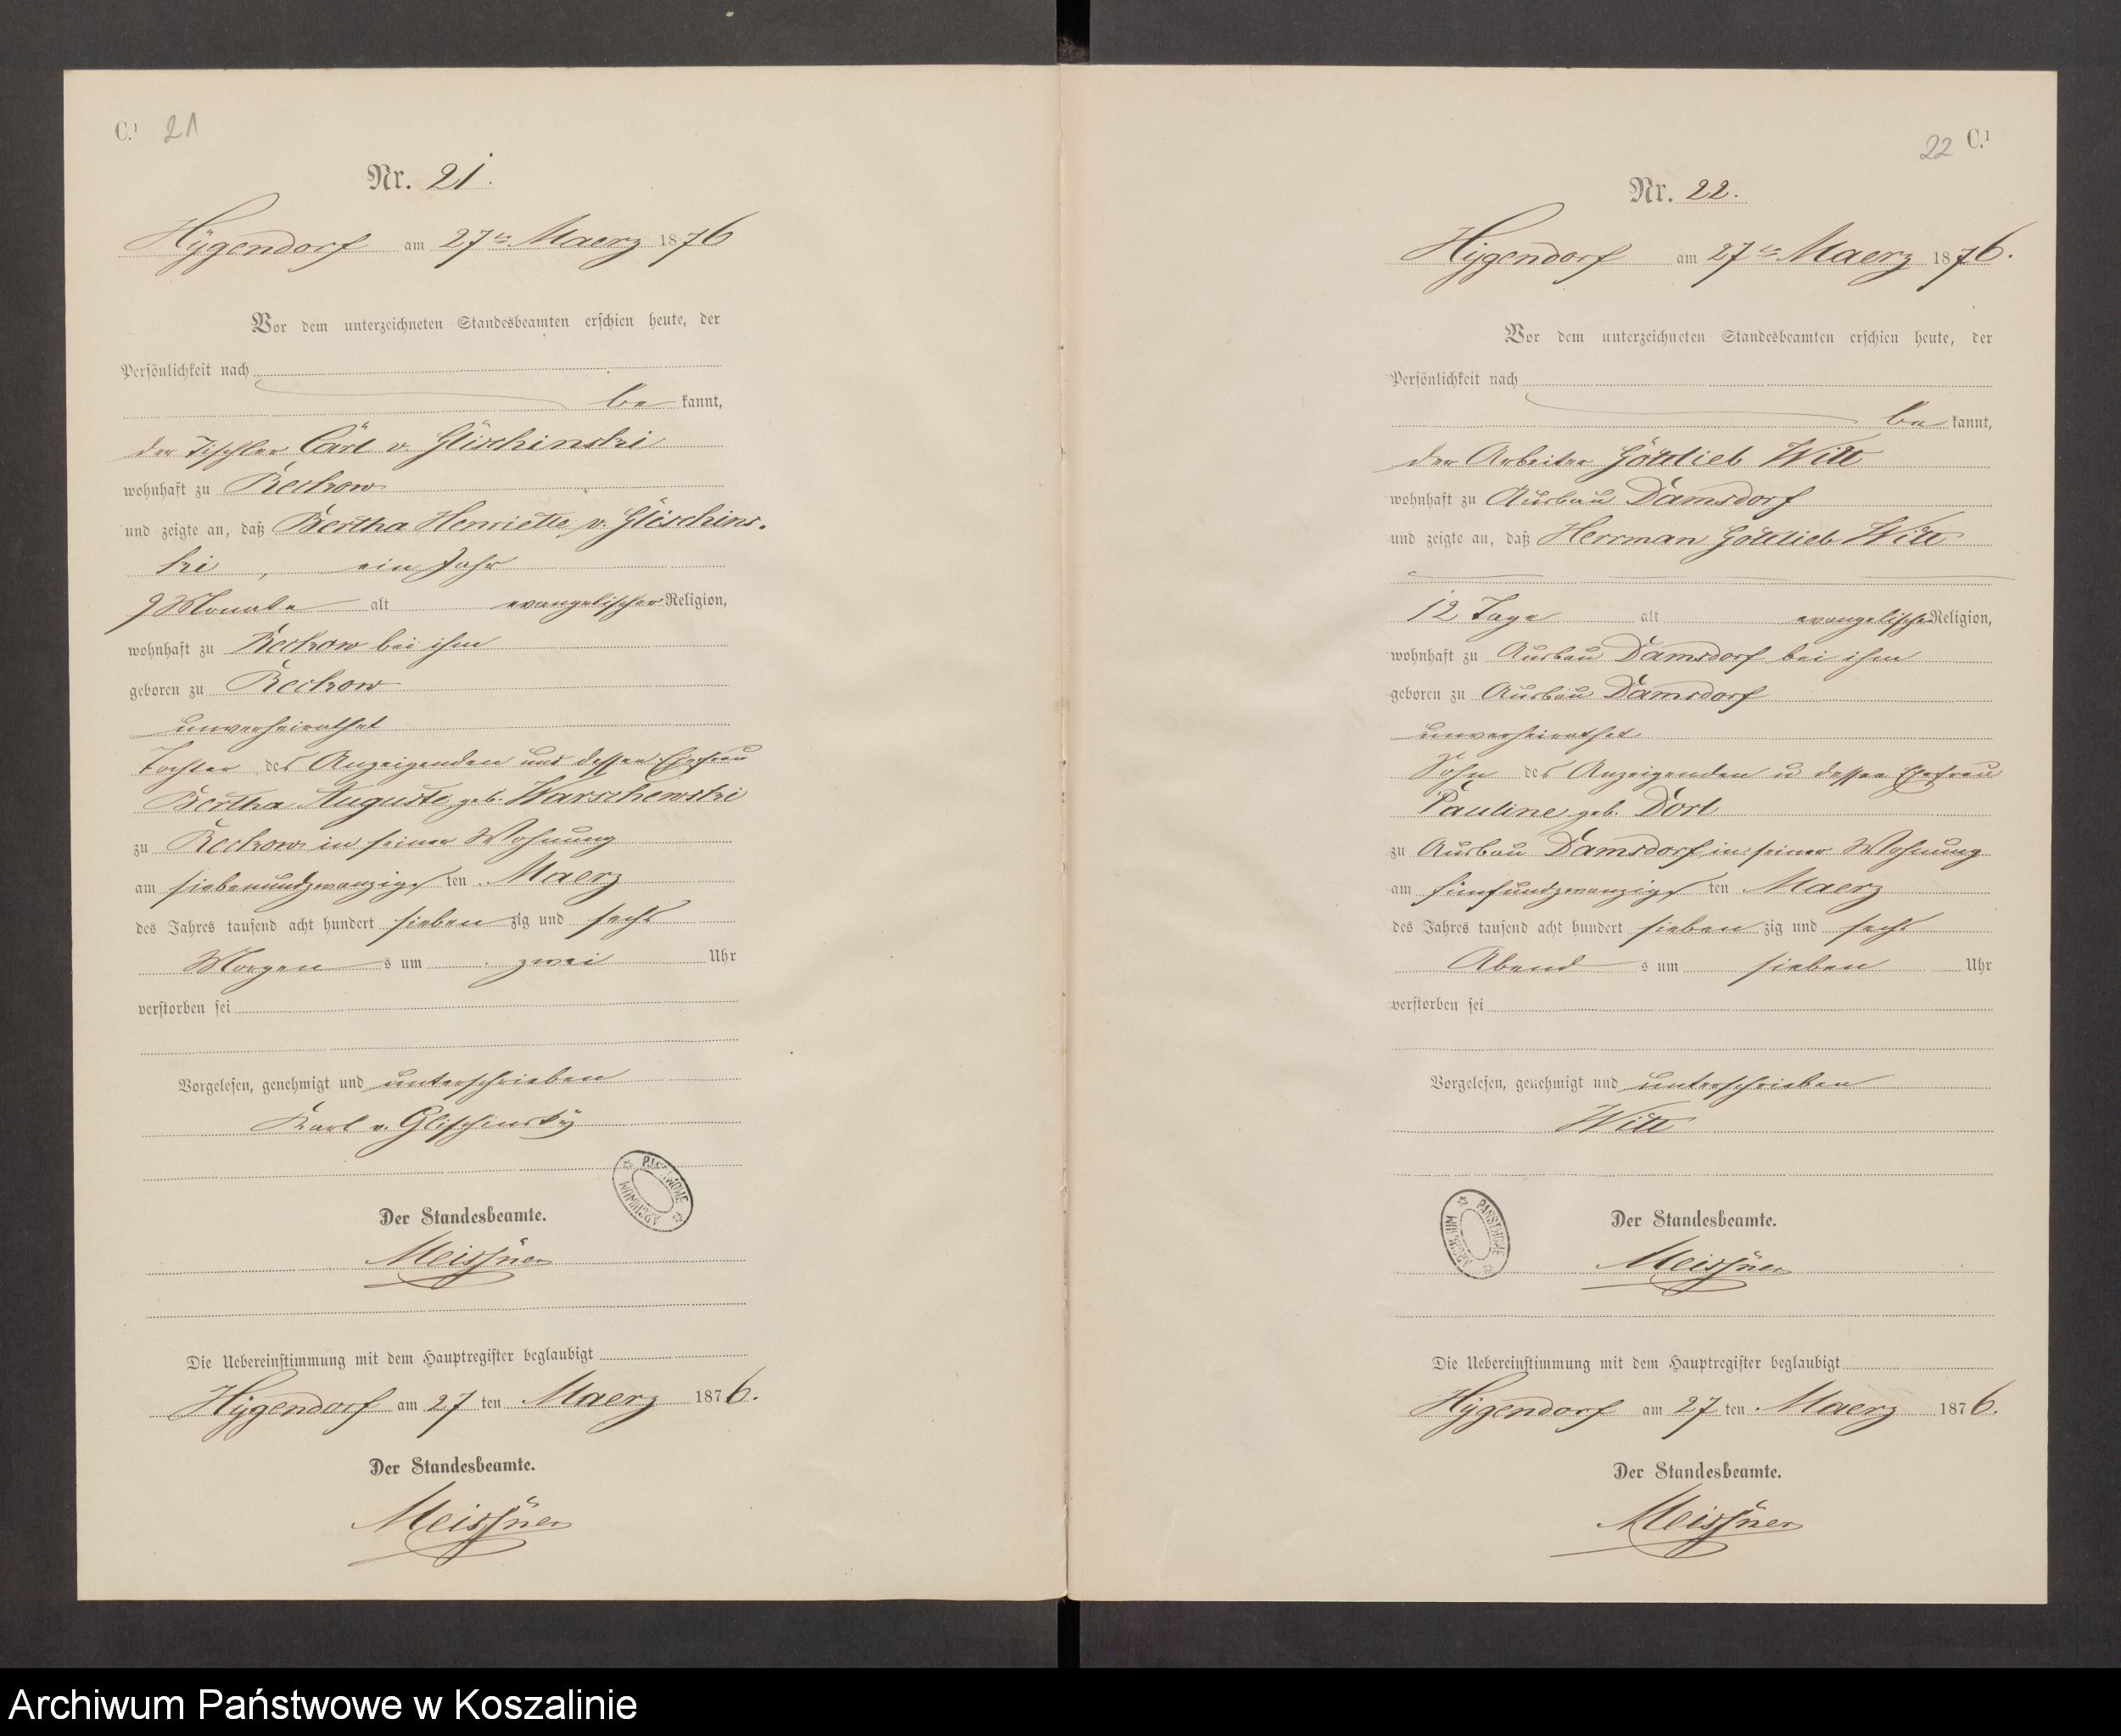 C.1 21
Nr. 21.
Hygendorf am 27ten Maerz 1876
Vor dem unterzeichneten Standesbeamten erschien heute, der
Persönlichkeit nach
be kannt,
der Tischler Carl v. Glischinski
wohnhaft zu Reckow
und zeigte an, daß Bertha Henriette v. Glischins-
ki, ein Jahr
9 Monate alt evangelischer Religion,
wohnhaft zu Reckow bei ihm
geboren zu Reckow
unverheirathet
Tochter des Anzeigenden und dessen Ehefrau
Bertha Auguste geb. Warschewski
zu Reckow in seiner Wohnung
am siebenundzwanzigs ten Maerz
des Jahres tausend acht hundert sieben zig und sechs
Morgen s um zwei Uhr
verstorben sei
Vorgelesen, genehmigt und unterschrieben
Karl v. Glischinsky
Der Standesbeamte.
Meissner
Die Uebereinstimmung mit dem Hauptregister beglaubigt
Hygendorf am 27 ten Maerz 1876.
Der Standesbeamte.
Meissner
22 C.1
Nr. 22.
Hygendorf am 27ten Maerz 1876.
Vor dem unterzeichneten Standesbeamten erschien heute, der
Persönlichkeit nach
be kannt,
der Arbeiter Gottlieb Witt
wohnhaft zu Ausbau Damsdorf
und zeigte an, daß Herrman Gottlieb Witt
12 Tage alt evangelischer Religion,
wohnhaft zu Ausbau Damsdorf bei ihm
geboren zu Ausbau Damsdorf
unverheirathet
Sohn des Anzeigenden u dessen Ehefrau
Pauline geb. Dorl
zu Ausbau Damsdorf in seiner Wohnung
am fünfundzwanzigs ten Maerz
des Jahres tausend acht hundert sieben zig und sechs
Abend s um sieben Uhr
verstorben sei
Vorgelesen, genehmigt und unterschrieben
Witt
PAŃSTWOWE ARCHIWUM
Der Standesbeamte.
Meissner
Die Uebereinstimmung mit dem Hauptregister beglaubigt
Hygendorf am 27 ten Maerz 1876.
Der Standesbeamte.
Meissner
Archiwum Państwowe w Koszalinie